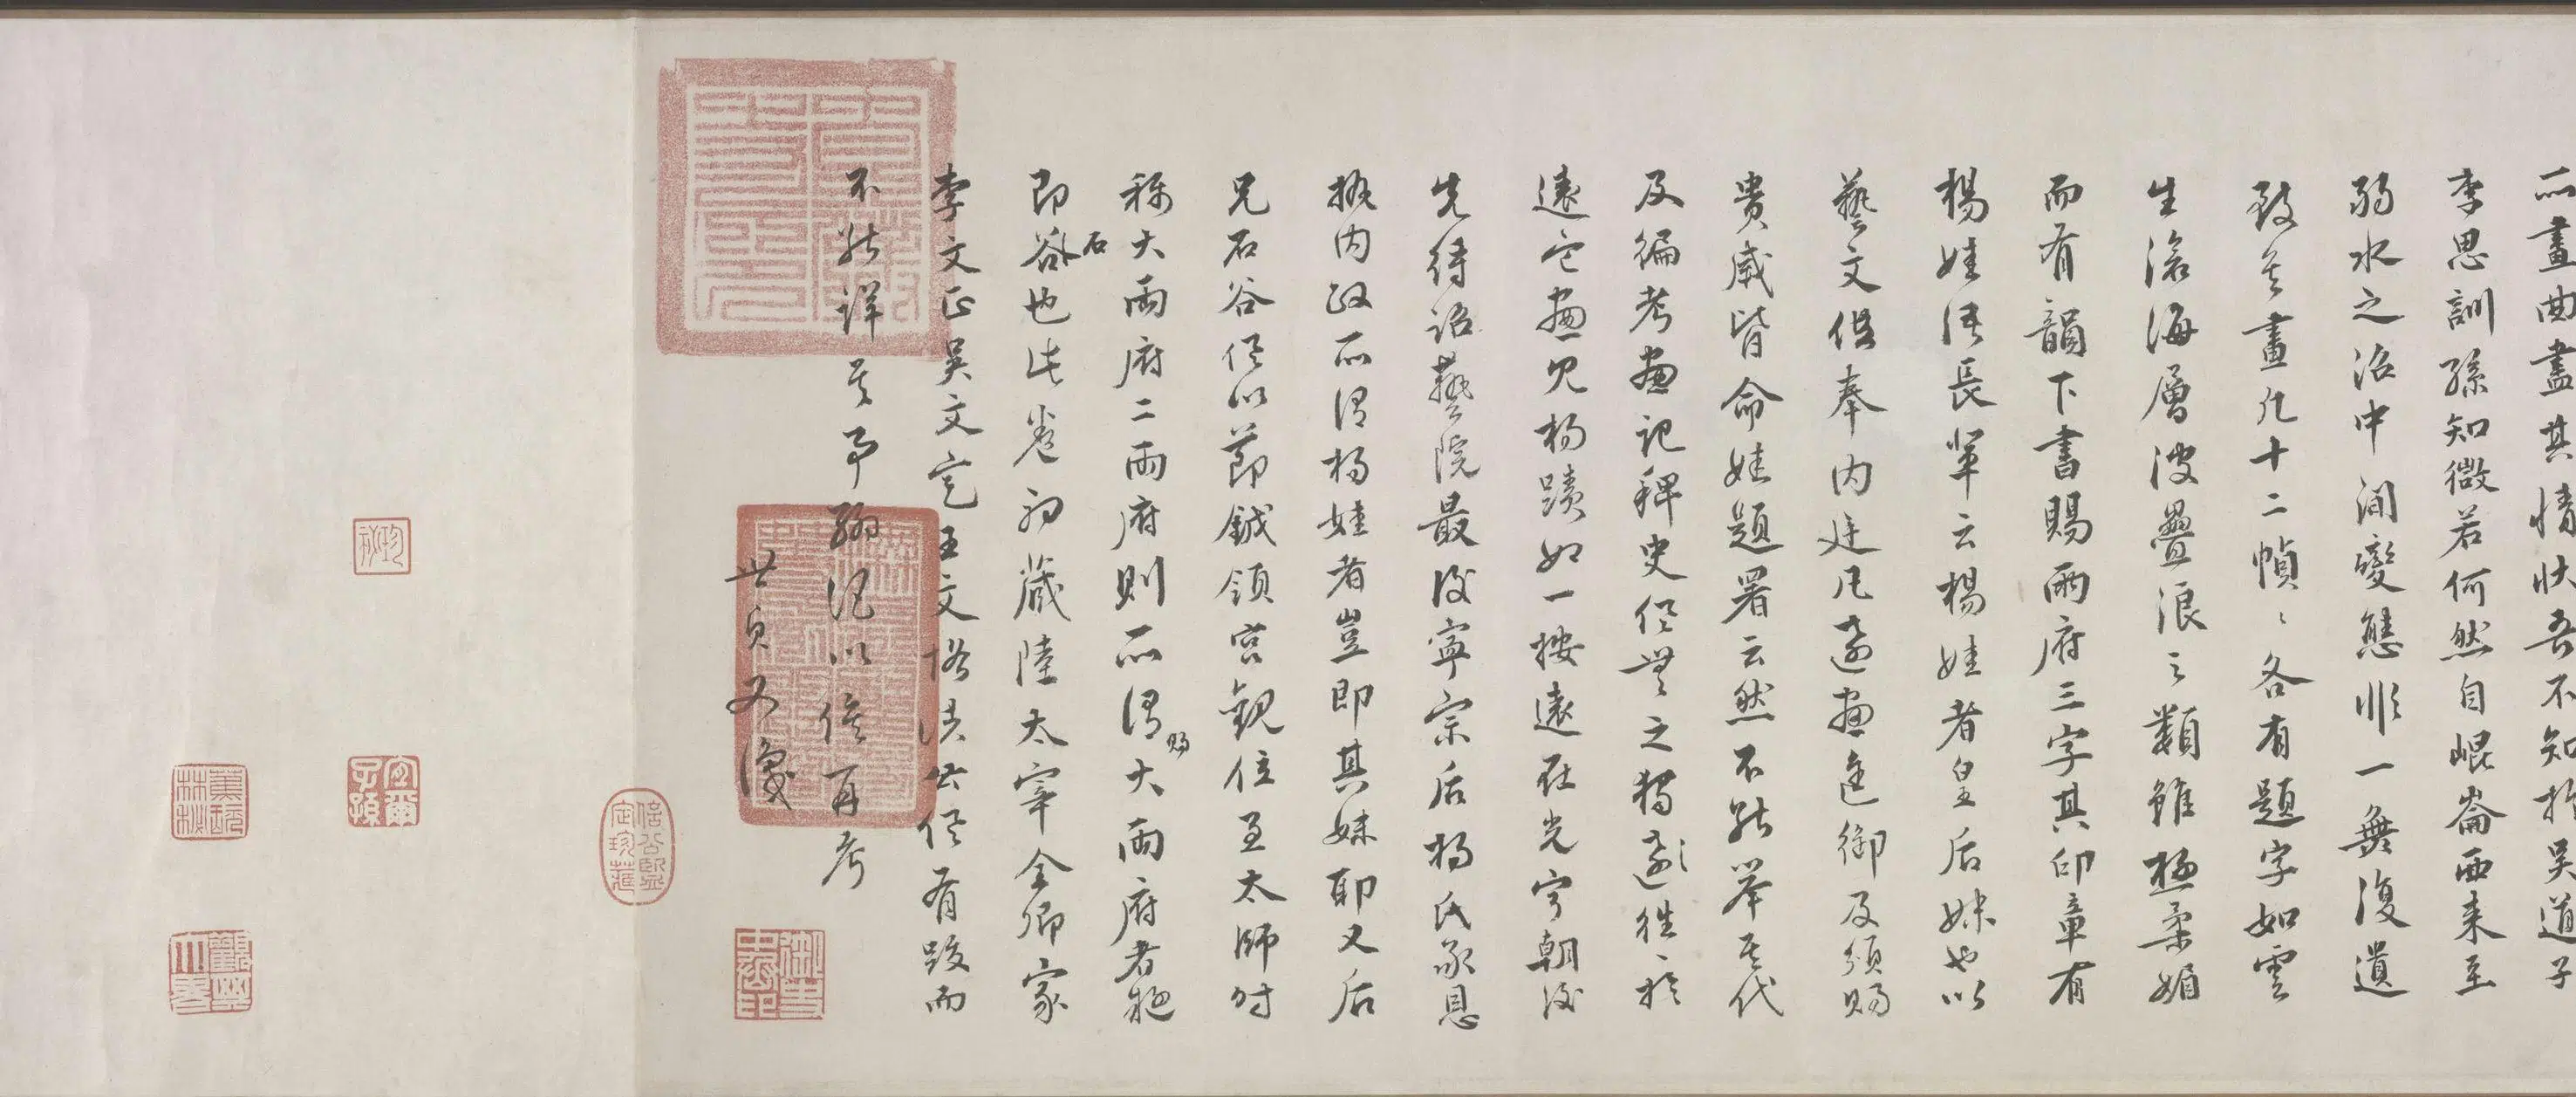 所畫曲盡其情狀吾不知於吳道子
李思訓孫知微若何然自崐崙西來至
弱水之沼中間變態非一無復遺
致矣畫凡十二幀〻各有題字如雲
生滄海層波疊浪之類雖極柔媚
而有韻下書賜兩府三字其印章有
楊娃語長輩云楊娃者皇后妹也以
藝文供奉內廷凡遠畫進御及頒賜
貴戚皆命娃題署云然不能舉其代
及徧考畫記稗史俱無之獨遠往〻於
遠它畫見楊蹟如一按遠在光寧朝後
先待詔藝院最後寧宗后楊氏承恩
執內政所謂楊娃者豈即其妹耶又后
兄石谷俱以節鉞領宮觀位至太師時
稱大兩府二兩府則所謂賜大兩府者疑
即石也此卷初藏陸太宰全卿家
李文正吳文定王文恪諸公俱有跋而
不能詳其事聊記以俟再考
世貞又識
信公鑒定珍藏
宜爾子孫
觀其大略